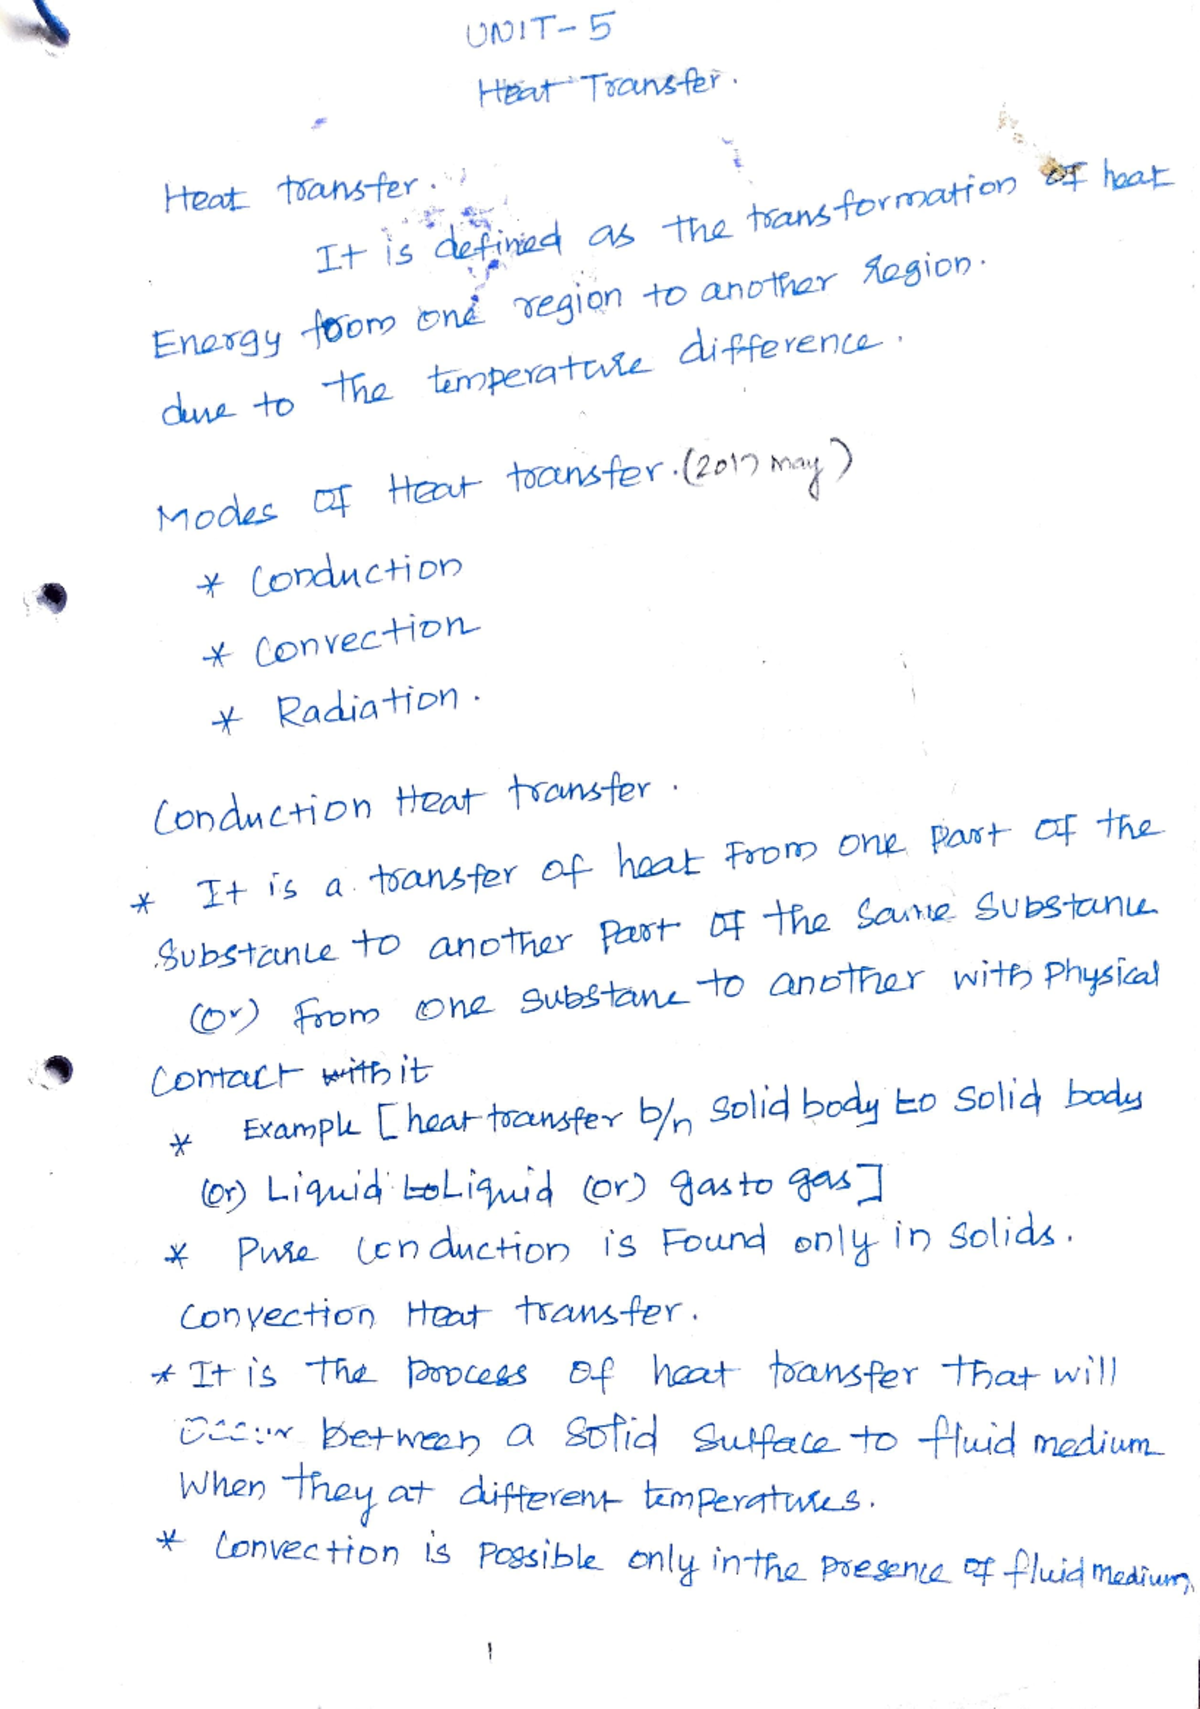 UNIT-5
Heat Transfer.
Heat transfer.
It is defined as the transformation of heat
Energy from one region to another region.
due to the temperature difference.
Modes of Heat transfer. (2017 may)
* Conduction
* Convection
* Radiation.
Conduction Heat transfer.
* It is a transfer of heat From one part of the
Substance to another Part of the Same Substance
(or) from one substanc to another with Physical
Contact with it
* Example [heat transfer b/n solid body to solid body
(or) Liquid to Liquid (or) gas to gas]
* Pure Conduction is Found only in solids.
Convection Heat transfer.
* It is the process of heat transfer that will
occur between a solid surface to fluid medium
When they at different temperatures.
* Convection is Possible only in the presence of fluid medium,
1